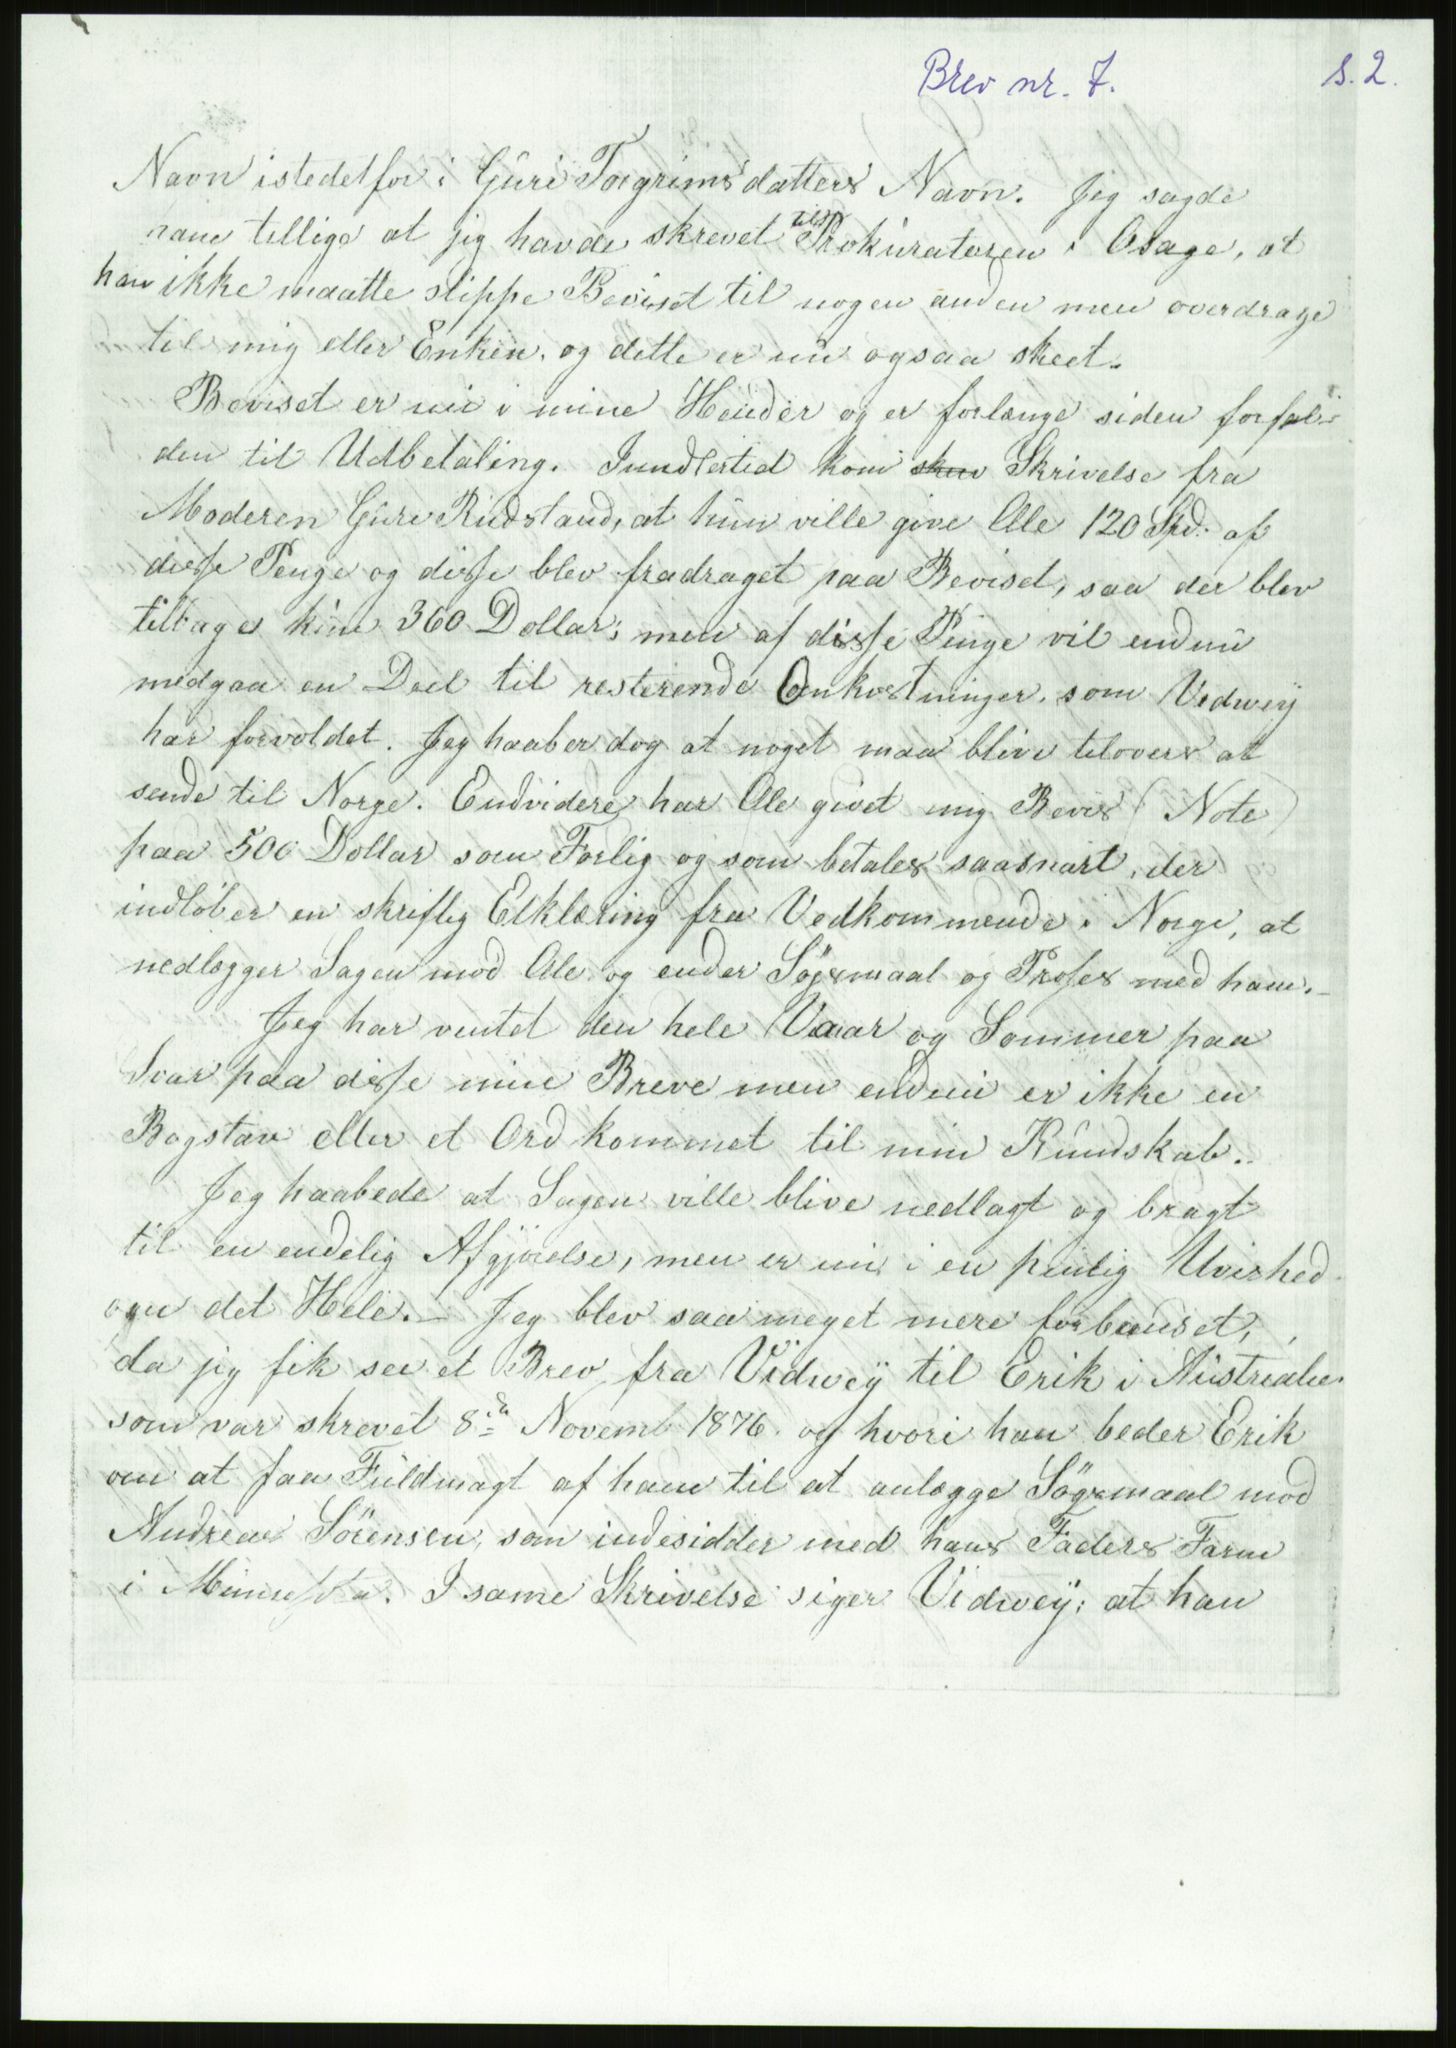 Brev nr. 7. s. 2.
Navn istedetfor i Guri Torgrimsdatters Navn. Jeg sagde
ham tillige at jeg havde skrevet til Prokuratoren i Osage, at
han ikke maatte slippe Beviset til nogen anden men overdrage
til mig eller Enken, og dette er nu ogsaa skeet.
Beviset er nu i mine Hender og er forlænge siden forfal-
den til Udbetaling. Imidlertid kom Skrivelse fra
Moderen Guri Rudstand, at hun ville give Ole 120 Spd. af
disse Penge og disse blev fradraget paa Beviset, saa der blev
tilbages kun 360 Dollar; men af disse Penge vil endnu
medgaa en Deel til resterende Omkostninger, som Vidwey
har forvoldet. Jeg haaber dog at noget maa blive tilovers at
sende til Norge. Endvidere har Ole givet mig Bevis (Note)
paa 500 Dollar som Forlig og som betales saasnart, der
indløber en skriftlig Elklæring fra Vedkommende i Norge, at
nedlægger Sagen mod Ole og ender Søgsmaal og Proses med ham.
Jeg har ventet den hele Vaar og Sommer paa
Svar paa disse mine Breve men endnu er ikke en
Bogstav eller et Ord kommet til min Kundskab.
Jeg haabede at Sagen ville blive nedlagt og bragt
til en endelig Afgjørelse, men er nu i en pinlig Uvished
om det Hele. Jeg blev saa meget mere forbauset,
da jeg fik see et Brev fra Vidwey til Erik i Australie
som var skrevet 8de Novemb 1876 og hvori han beder Erik
om at faa Fuldmagt af ham til at anlægge Søgsmaal mod
Andreas Sörensen, som indesidder med hans Faders Farm
i Minnesota. I same Skrivelse siger Vidwey; at han